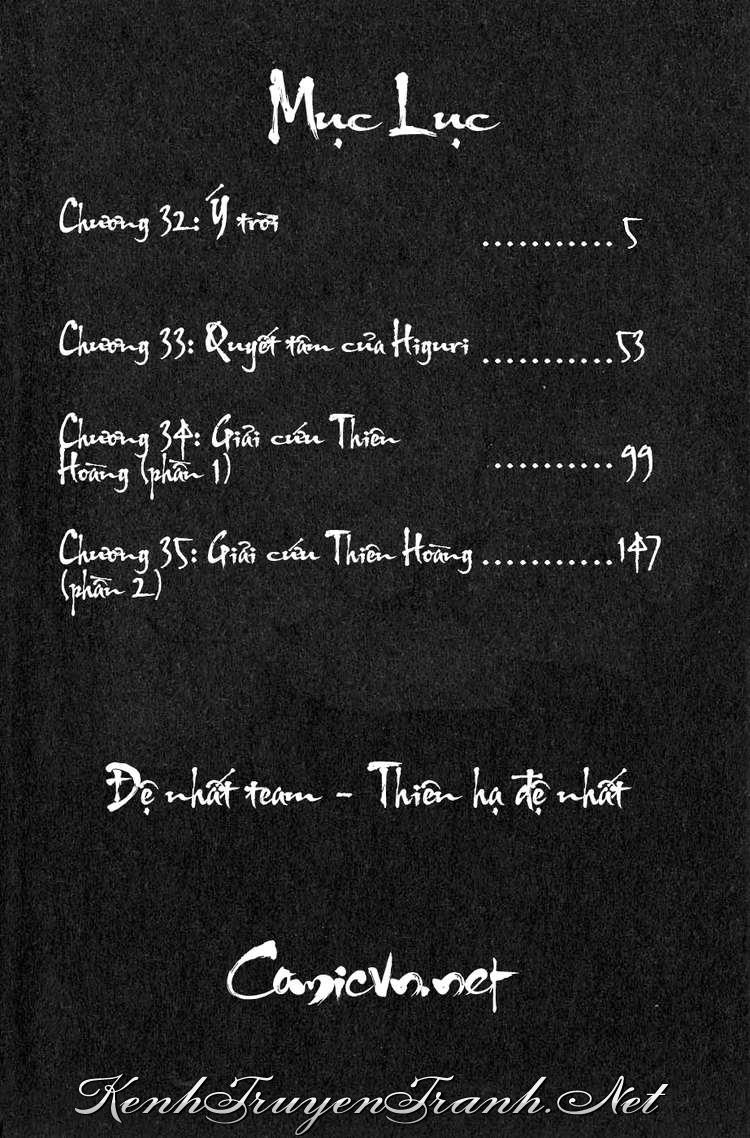 Mục Lục
Chương 32: Ý trời ........... 5
Chương 33: Quyết tâm của Higuri ........... 53
Chương 34: Giải cứu Thiên
Hoàng (phần 1) .......... 99
Chương 35: Giải cứu Thiên Hoàng ........... 147
(phần 2)
Đệ nhất team - Thiên hạ đệ nhất
Comicvn.net
KenhTruyenTranh.Net